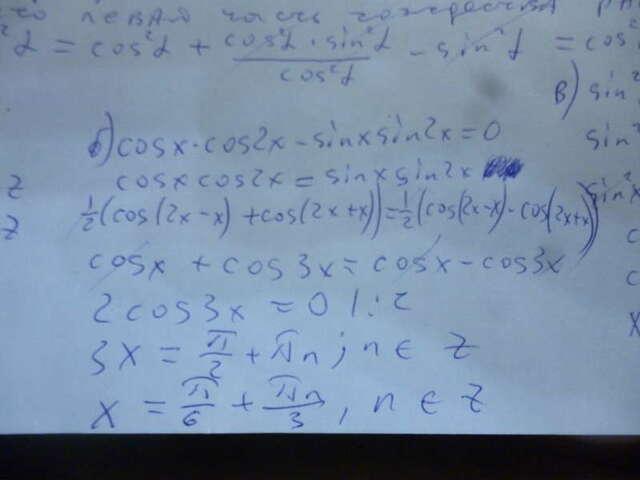 левая часть тождества
= cos²α + cos²α · sin²α / cos²α - sin²α = cos²
в) sin²
б) cosx·cos2x - sinxsin2x = 0
sin²
cosx cos2x = sinx sin2x
z
sin x
z
1/2(cos(2x-x) + cos(2x+x)) = 1/2(cos(2x-x) - cos(2x+x))
cosx + cos3x = cosx - cos3x
2cos3x = 0 |:2
3x = π/2 + πn; n ∈ Z
x = π/6 + πn/3, n ∈ Z